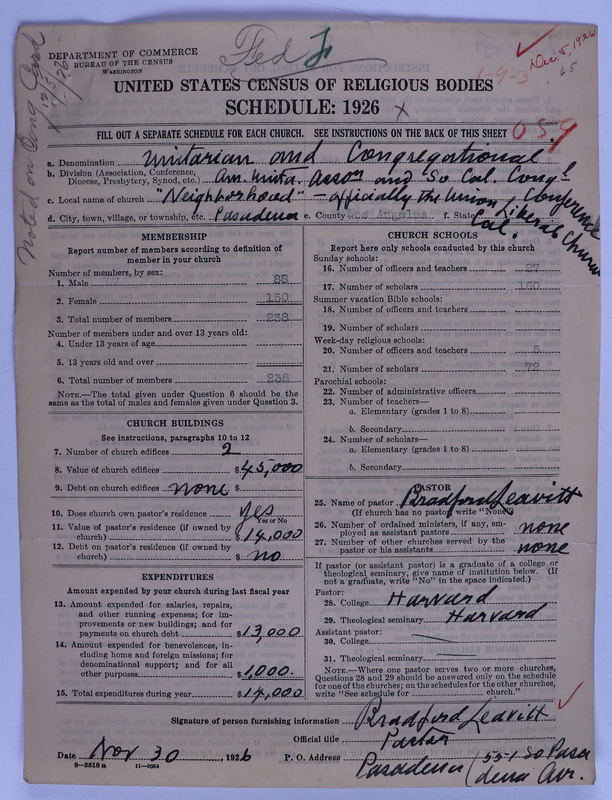 DEPARTMENT OF COMMERCE
BUREAU OF THE CENSUS
WASHINGTON
Fed
Dec. 5, 1926
65
1-9-3
Noted on Cong Card
UNITED STATES CENSUS OF RELIGIOUS BODIES
SCHEDULE: 1926 x
FILL OUT A SEPARATE SCHEDULE FOR EACH CHURCH. SEE INSTRUCTIONS ON THE BACK OF THIS SHEET
059
a. Denomination Unitarian and Congregational
b. Division (Association, Conference, Diocese, Presbytery, Synod, etc.) Am. Unita. Asson and So Cal. Congl Conference
c. Local name of church "Neighborhood" - officially the Union Liberal Church
d. City, town, village, or township, etc. Pasadena e. County Los Angeles f. State Cal.
MEMBERSHIP
Report number of members according to definition of
member in your church
Number of members, by sex:
1. Male 88
2. Female 150
3. Total number of members 238
Number of members under and over 13 years old:
4. Under 13 years of age
5. 13 years old and over
6. Total number of members 238
NOTE.—The total given under Question 6 should be
same as the total of males and females given under Question 3.
CHURCH BUILDINGS
See instructions, paragraphs 10 to 12
7. Number of church edifices 2
8. Value of church edifices $45,000
9. Debt on church edifices none $
10. Does church own pastor's residence yes
Yes or No
11. Value of pastor's residence (if owned by
church) $14,000
12. Debt on pastor's residence (if owned by
church) $ no
EXPENDITURES
Amount expended by your church during last fiscal year
13. Amount expended for salaries, repairs,
and other running expenses; for im-
provements or new buildings; and for
payments on church debt $13,000
14. Amount expended for benevolences, in-
cluding home and foreign missions; for
denominational support; and for all
other purposes $1,000
15. Total expenditures during year $14,000
CHURCH SCHOOLS
Report here only schools conducted by this church
Sunday schools:
16. Number of officers and teachers 27
17. Number of scholars 160
Summer vacation Bible schools:
18. Number of officers and teachers
19. Number of scholars
Week-day religious schools:
20. Number of officers and teachers 5
21. Number of scholars 72
Parochial schools:
22. Number of administrative officers
23. Number of teachers—
a. Elementary (grades 1 to 8)
b. Secondary
24. Number of scholars—
a. Elementary (grades 1 to 8)
b. Secondary
PASTOR
25. Name of pastor Bradford Leavitt
(If church has no pastor, write "None")
26. Number of ordained ministers, if any, em-
ployed as assistant pastors none
27. Number of other churches served by the
pastor or his assistants none
If pastor (or assistant pastor) is a graduate of a college or
theological seminary, give name of institution below. (If
not a graduate, write "No" in the space indicated.)
Pastor:
28. College Harvard
29. Theological seminary Harvard
Assistant pastor:
30. College
31. Theological seminary
NOTE.—Where one pastor serves two or more churches,
Questions 28 and 29 should be answered only on the schedule
for one of the churches; on the schedules for the other churches,
write "See schedule for church."
Signature of person furnishing information Bradford Leavitt
Official title Pastor
Date Nov 30, 1926 P. O. Address Pasadena (551 So Pasadena Av.
8-5518 a 11-9054